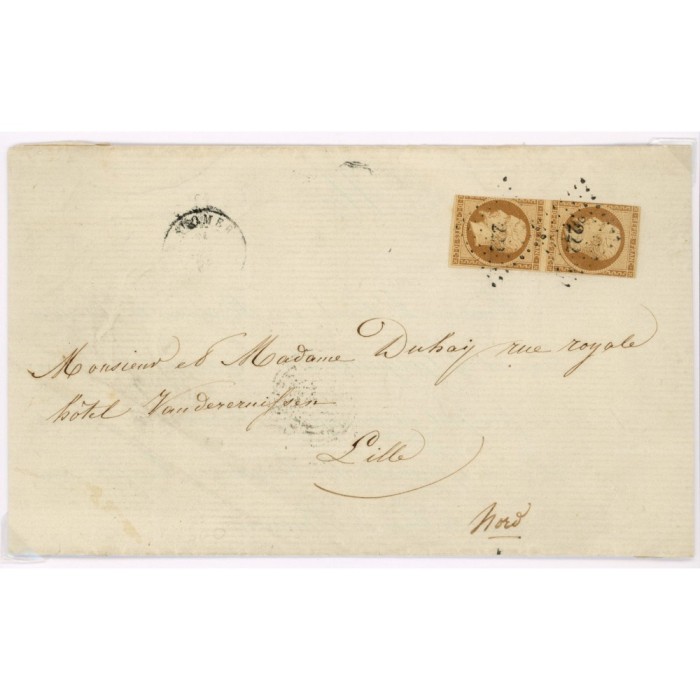 ST OMER
Monsieur et Madame Duhay rue royale
hôtel Vanderernissen
Lille
Nord